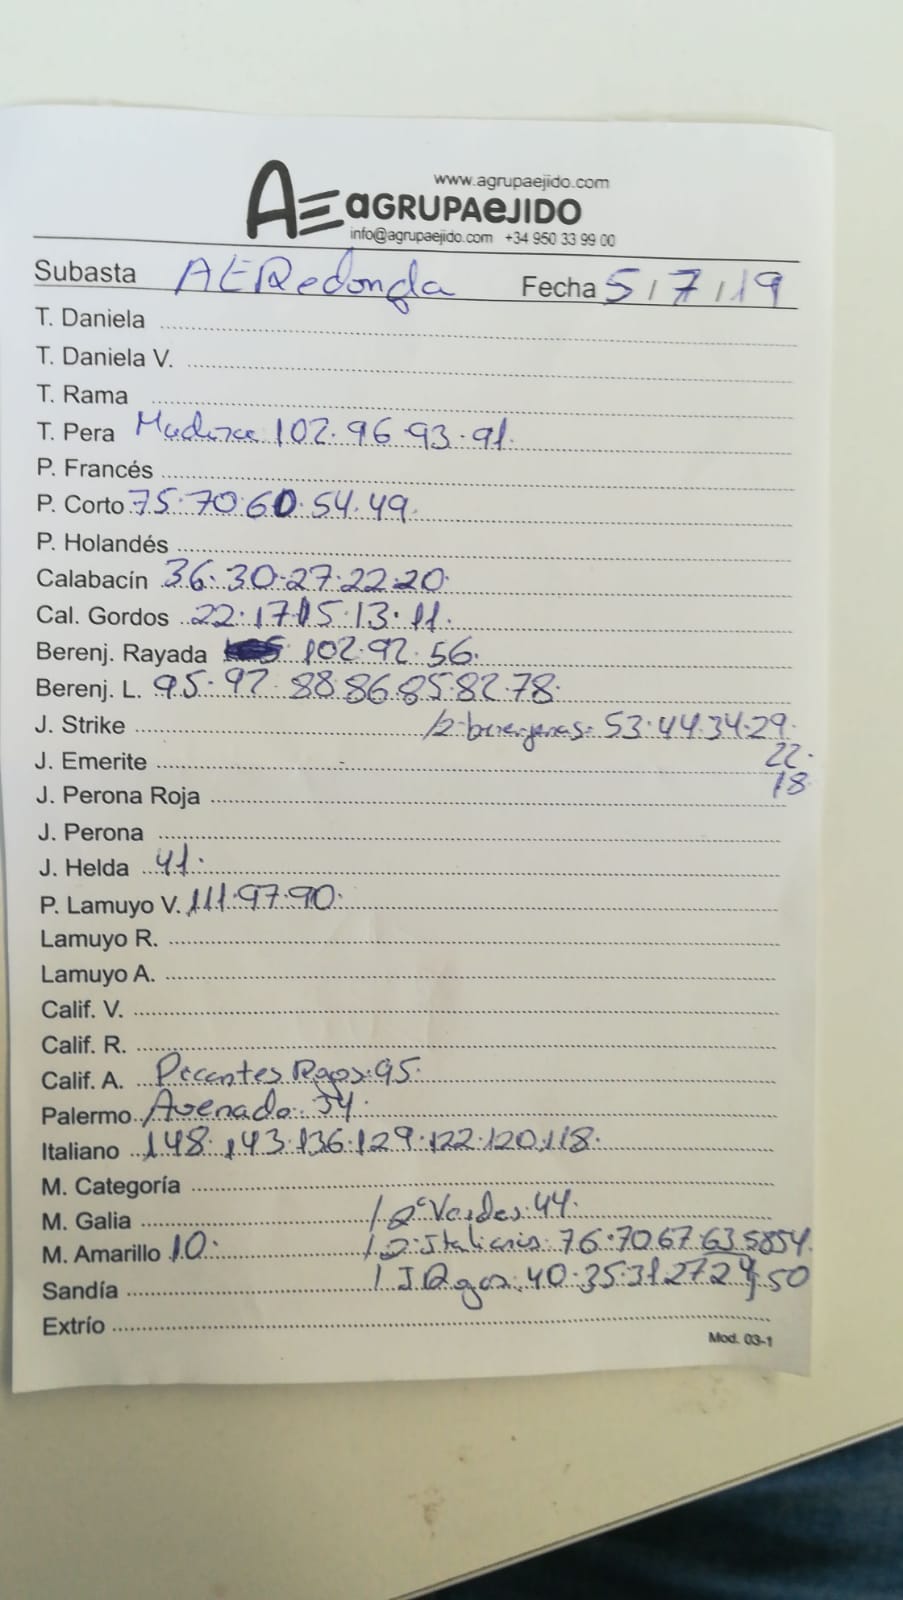 www.agrupaejido.com
AE aGRUPAeJIDO
info@agrupaejido.com +34 950 33 99 00
Subasta AE Redonda Fecha 5/7/19
T. Daniela
T. Daniela V.
T. Rama
T. Pera 102.96.93.91.
P. Francés
P. Corto 75.70.60.54.49.
P. Holandés
Calabacín 36.30.27.22.20.
Cal. Gordos 22.17.15.13.11.
Berenj. Rayada 102.92.56.
Berenj. L. 95.92.88.86.85.82.78.
J. Strike /2 berenjenas: 53.44.34.29.
22.
J. Emerite
18
J. Perona Roja
J. Perona
J. Helda 41.
P. Lamuyo V. 111.97.90.
Lamuyo R.
Lamuyo A.
Calif. V.
Calif. R.
Calif. A. Picantes Rojos: 95.
Palermo Asenado: 34.
Italiano 148.143.136.129.122.120.118.
M. Categoría
M. Galia /2ª Verdes: 44.
M. Amarillo 10. /2 Italianos: 76.70.67.63.58.54.
Sandía / J Rojos: 40.35.31.27.24 50
Extrío
Mod. 03-1